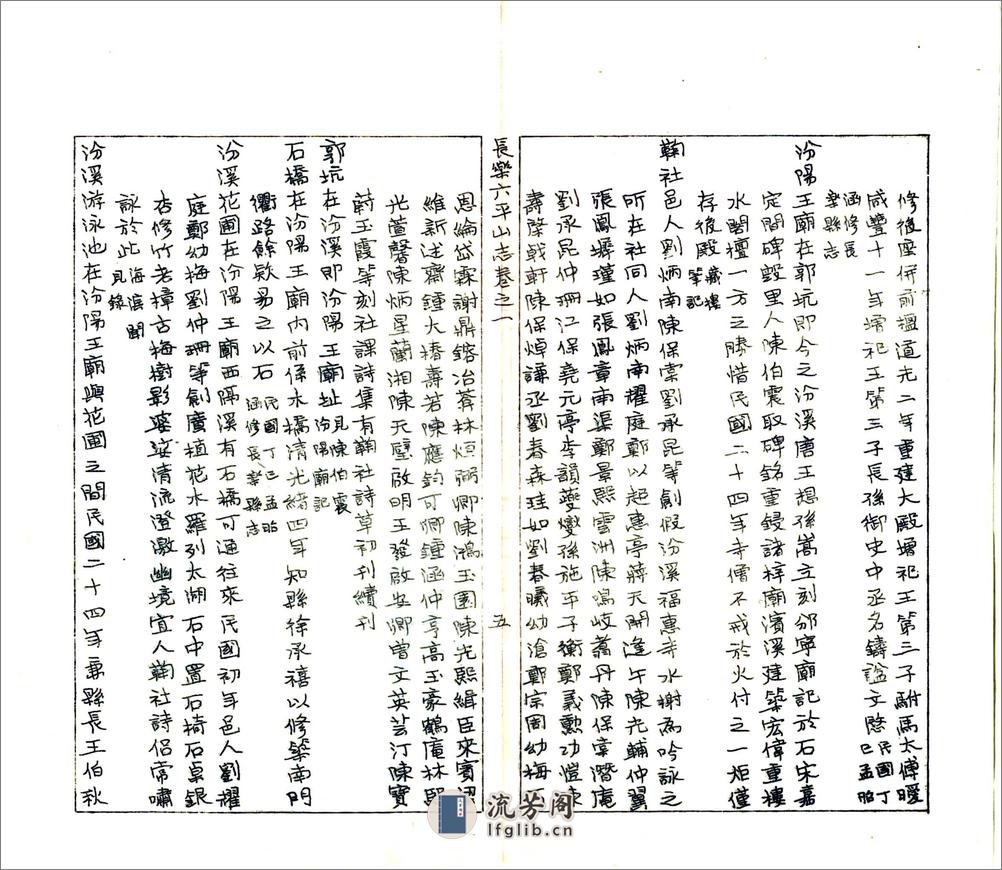 修後座併前搵道光二年重建大殿增祀王第三子駙馬太傅曖
咸豐十一年增祀王第三子長孫御史中丞名鑄謚文愍民國丁
巳孟昭
涵修長
樂縣志
汾陽王廟在郭坑即今之汾溪唐王想孫嵩立刻邠寧廟記於石宋嘉
定間碑毀里人陳伯震取碑銘重鋟諸梓廟濱溪建築宏偉重樓
水閣檀一方之勝惜民國二十四年寺僧不戒於火付之一炬僅
存後殿藏樓
筆記
鞠社邑人劉炳南陳保棠劉承昆等創假汾溪福惠寺水榭為吟詠之
所在社同人劉炳南耀庭鄭以起惠亭蔣天開逢午陳光輔仲翼
張鳳墀瑾如張鳳章南渠鄭景熙雪洲陳鳴岐蕎丹陳保棠潛庵
劉承昆仲珊江保堯元亭李韻夔燮孫施平子衡鄭義勳功愷陳
壽棨戟軒陳保焯謙丞劉春森珪如劉春曦幼滄鄭宗周幼梅丘
長樂六平山志卷之一
五
恩綸岱霖謝鼎鎔冶莽林烜弼卿陳鴻玉園陳光熙緝臣來賓
維新述齋鍾大椿壽若陳應鈞可卿鍾涵仲亨高玉豪鶴庵林
光萱馨陳炳星蘭湘陳天璧啟明王發啟安卿曾文英芸汀陳寶
蔚玉霞等刻社課詩集有鞠社詩草初刊續刊
郭坑在汾溪即汾陽王廟址見陳伯震
汾陽廟記
石橋在汾陽王廟內前係木橋清光緒四年知縣徐承禧以修築南門
衢路餘欵易之以石民國丁巳孟昭
涵修長樂縣志
汾溪花圃在汾陽王廟西隔溪有石橋可通往來民國初年邑人劉耀
庭鄭幼梅劉仲珊等創廣植花木羅列太湖石中置石椅石桌銀
杏修竹老樟古梅樹影婆娑清流澄澈幽境宜人鞠社詩侶常嘯
詠於此海濱聞
見錄
汾溪游泳池在汾陽王廟與花圃之間民國二十四年縣長王伯秋
流芳阁
lfglib.cn